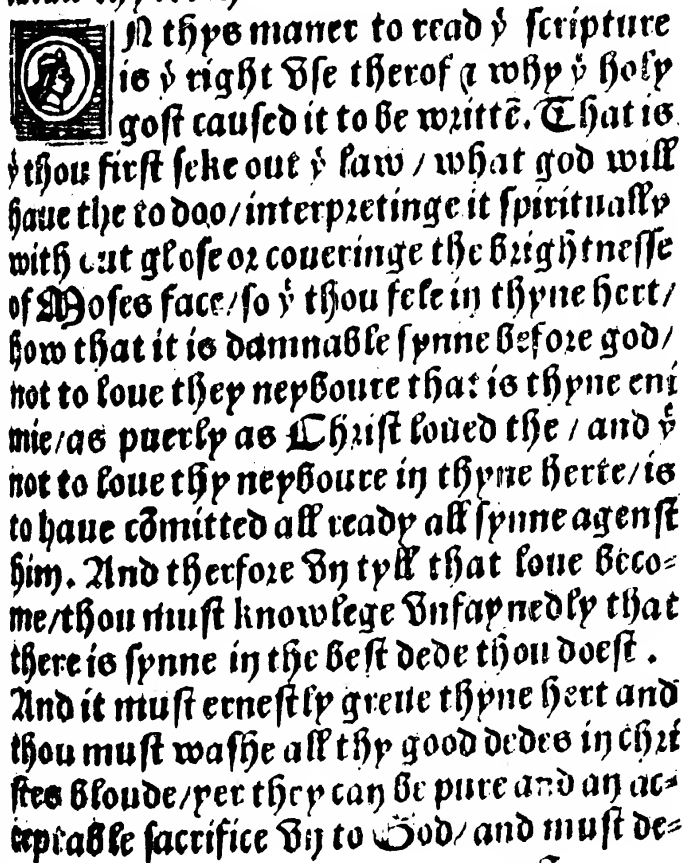 N thys maner to read yͭ scripture
is yͤ right vse therof ⁊ why yͤ holy
gost caused it to be writtē. That is
yͭ thou first seke out yͤ law / what god will
haue the to doo / interpretinge it spiritually
with out glose or coueringe the brightnesse
of Moses face / so yͭ thou fele in thyne hert /
how that it is damnable synne before god /
not to loue they neyboure that is thyne eni
mie / as puerly as Christ loued the / and yͭ
not to loue thy neyboure in thyne herte / is
to haue cōmitted all ready all synne agenst
him. And therfore vn tyll that loue beco⸗
me / thou must knowlege vnfaynedly that
there is synne in the best dede thou doest.
And it must ernestly greue thyne hert and
thou must washe all thy good dedes in chri
stes bloude / yer they can be pure and an ac⸗
ceptable sacrifice vn to God / and must de⸗